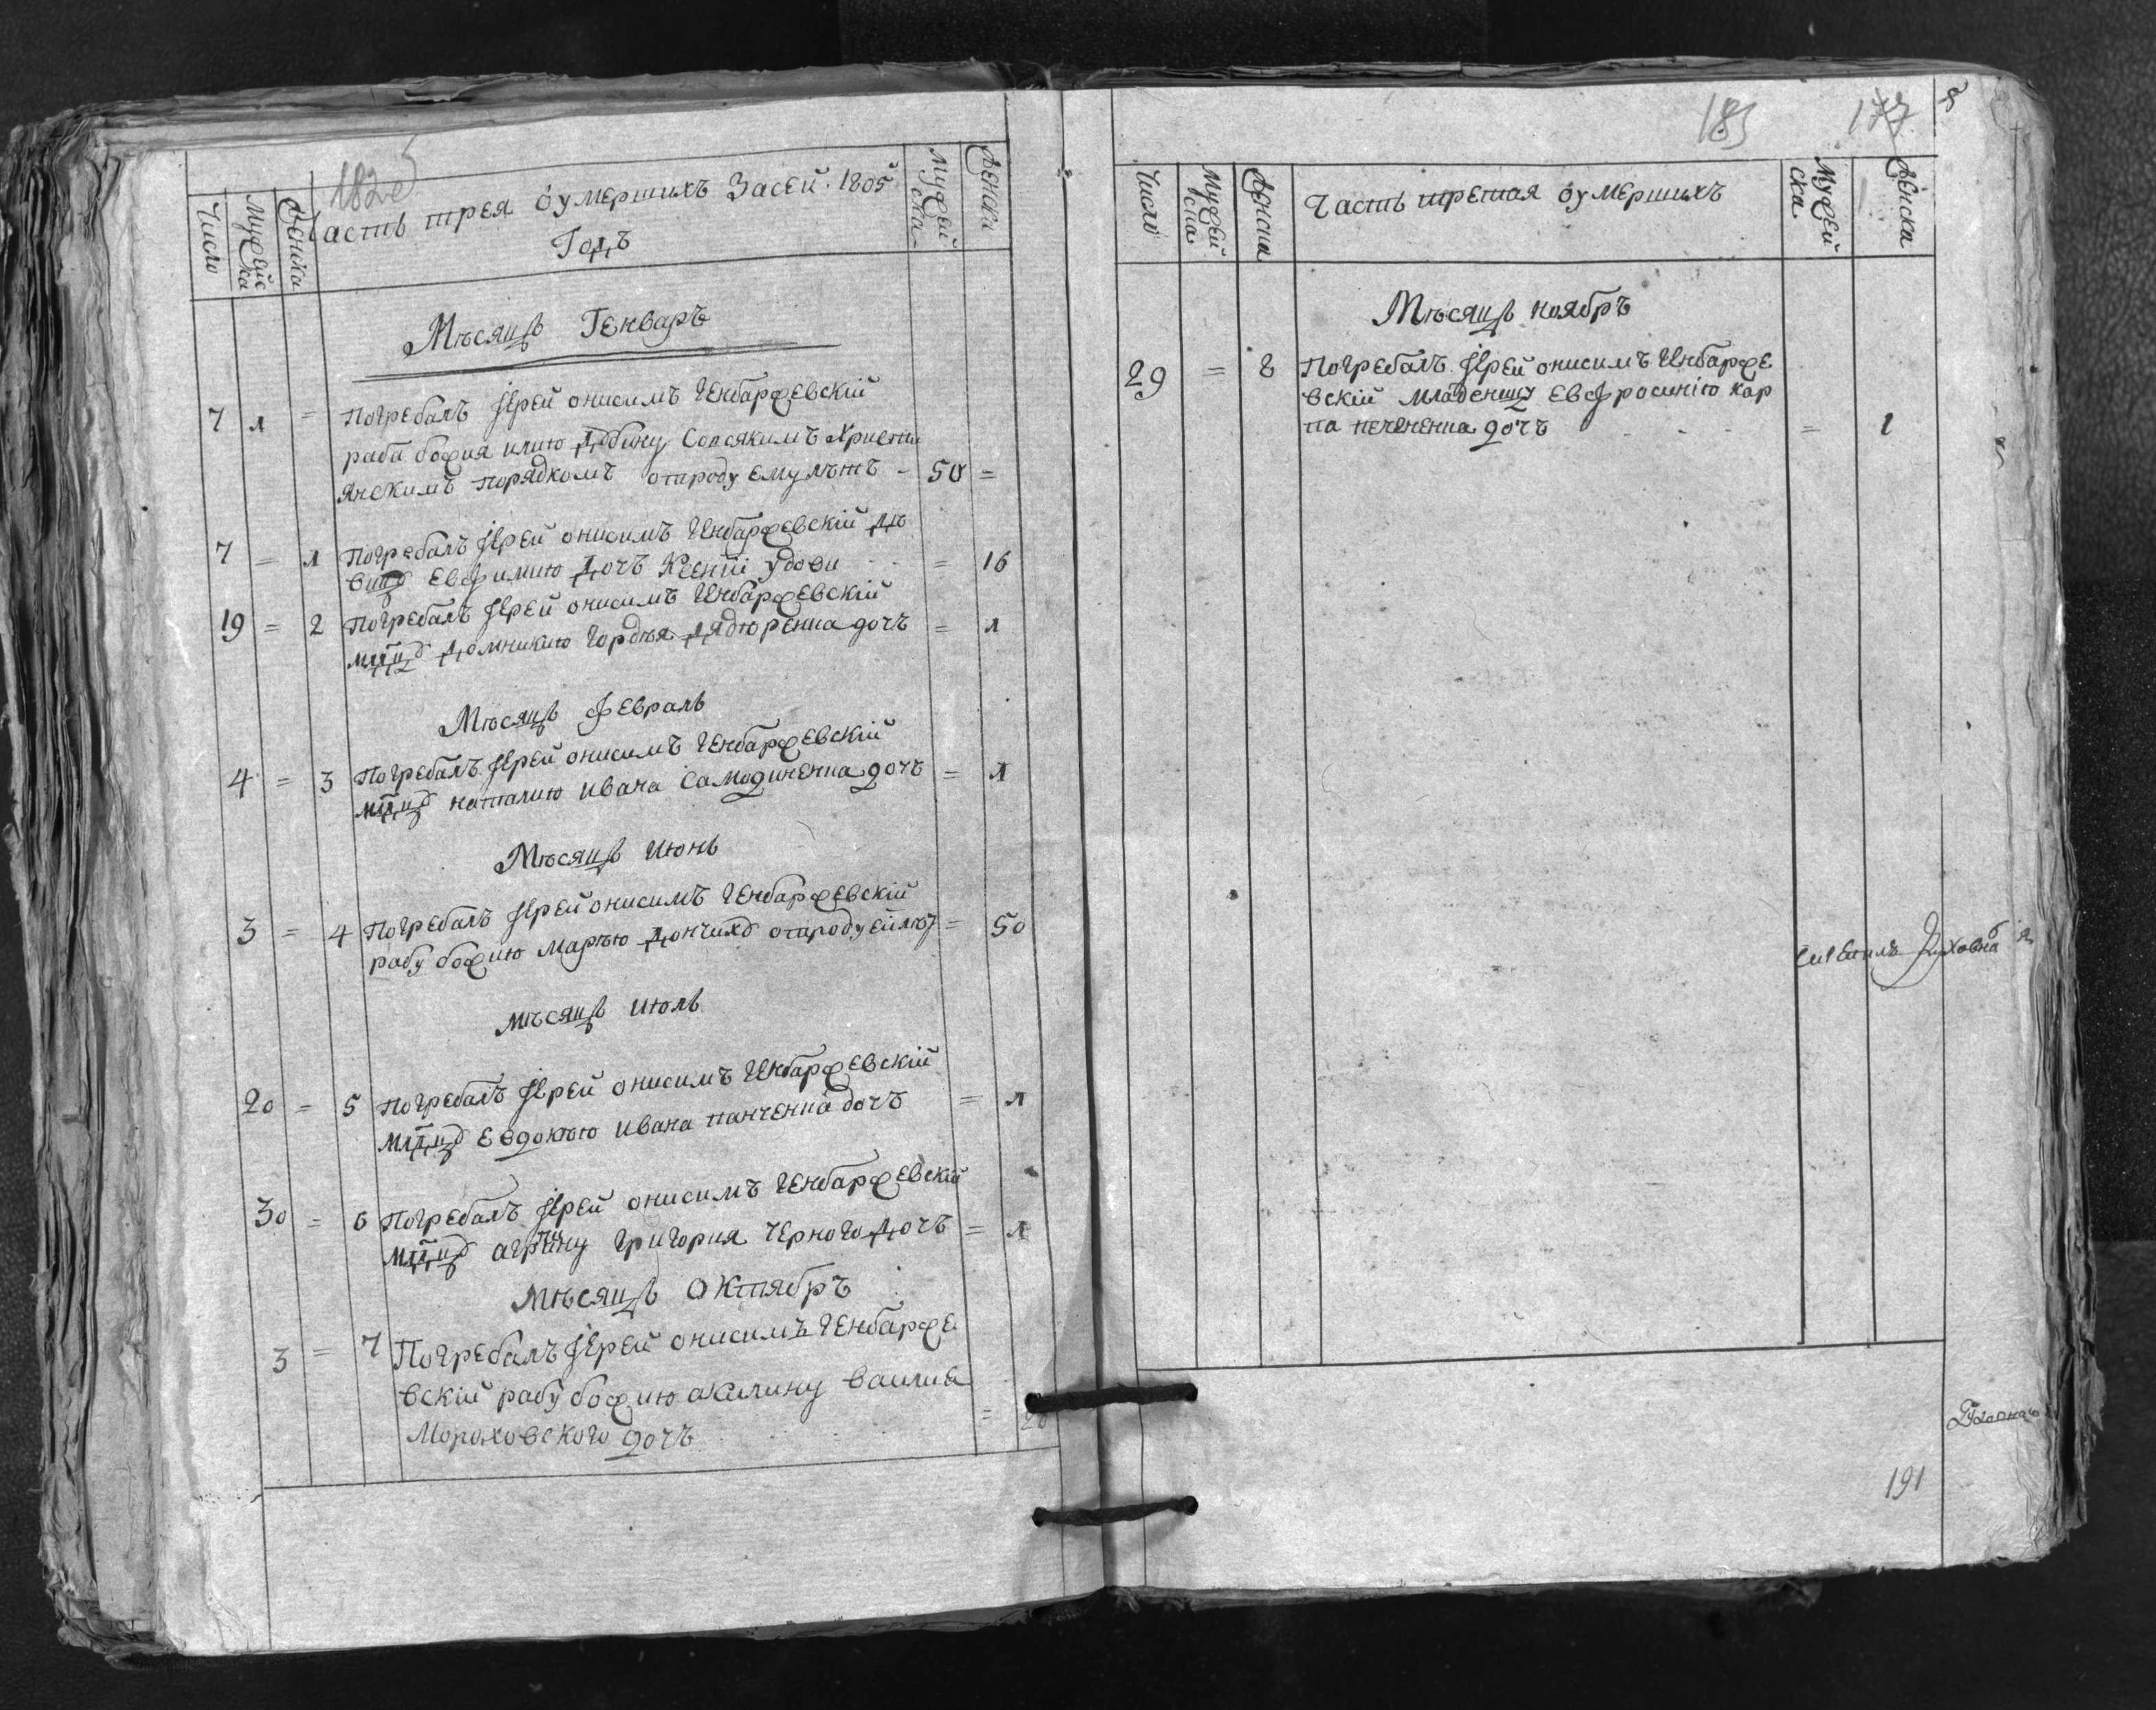 182
Часть трея оумершихъ Засей 1805
Годъ
Число
Мужейска
Женска
Мужейска
Женска
Мѣсяцъ Генваръ
7 1 = Погребалъ Іерей онисимъ Генбаржевскій
раба божия илию Дбину Совсякимъ Христи
янскимъ порядкомъ отроду ему лѣтъ - 50 =
7 = 1 Погребалъ Іерей онисимъ Генбаржевскій дѣ
вицу Евфимию дочъ Ксении удови = 16
19 = 2 Погребалъ Іерей онисимъ Генбаржевскій
млдцу домникию Гордѣя дядюренка дочъ = 1
Мѣсяцъ февраль
4 = 3 Погребалъ Іерей онисимъ Генбаржевскій
млдцу наталию ивана Самодиненка дочъ = 1
Мѣсяцъ Июнь
3 = 4 Погребалъ Іерей онисимъ Генбаржевскій
рабу божию Марѣю дончиху отроду ей лѣт = 50
мѣсяцъ июль
20 = 5 Погребалъ Іерей онисимъ Генбаржевскій
млдцу Евдокѣю ивана панченка дочъ = 1
30 = 6 Погребалъ Іерей онисимъ Генбаржевскій
млдцу агрпину григория Черного дочъ = 1
Мѣсяцъ Октябръ
3 = 7 Погребалъ Іерей онисимъ Генбарже
вскій рабу божию акилину василия
Мороховского дочъ = 20
183
177
Число
Мужейска
Женска
Часть третая оумершихъ
Мужейска
Женска
Мѣсяцъ ноябръ
29 = 8 Погребалъ Іерей онисимъ Генбарже
вскій младенцу Евфросинію кар
па печененка дочъ = 1
Духовна
191